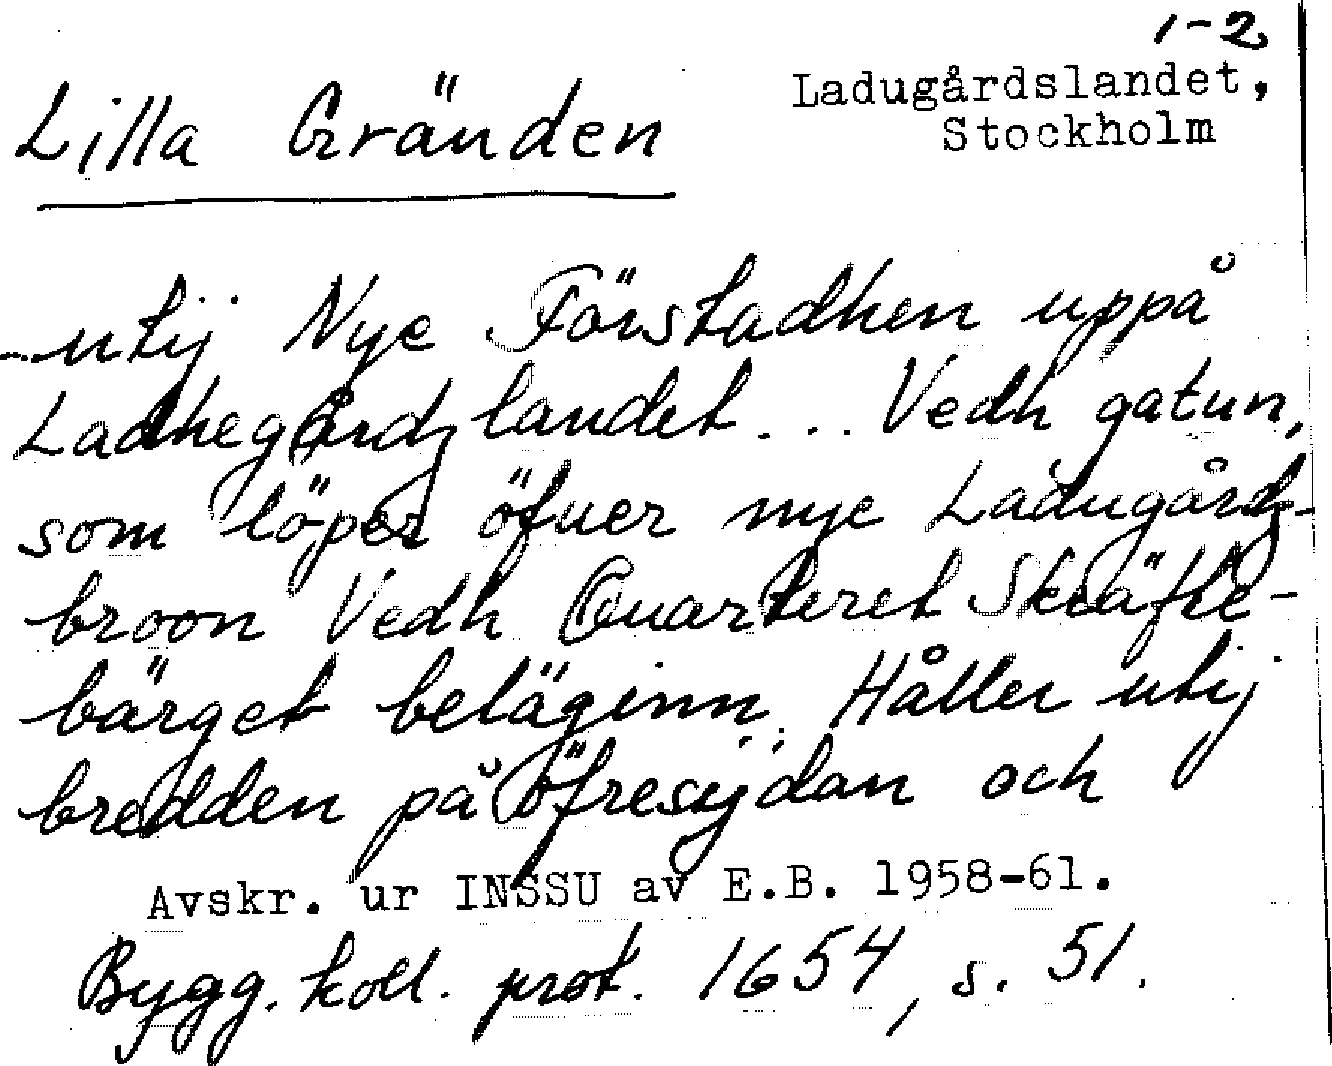 1-2
Lilla Gränden
Ladugårdslandet,
Stockholm
...utij Nye Förstadhen uppå
Ladhegårdzlandet... Vedh gatun,
som löper öfuer nye Ladugårdz-
broon Vedh Quarteret Skräfle-
bärget beläginn. Håller utij
bredden på öfresijdan och
Avskr. ur INSSU av E.B. 1958-61.
Bygg. koll. prot. 1654, s. 51.